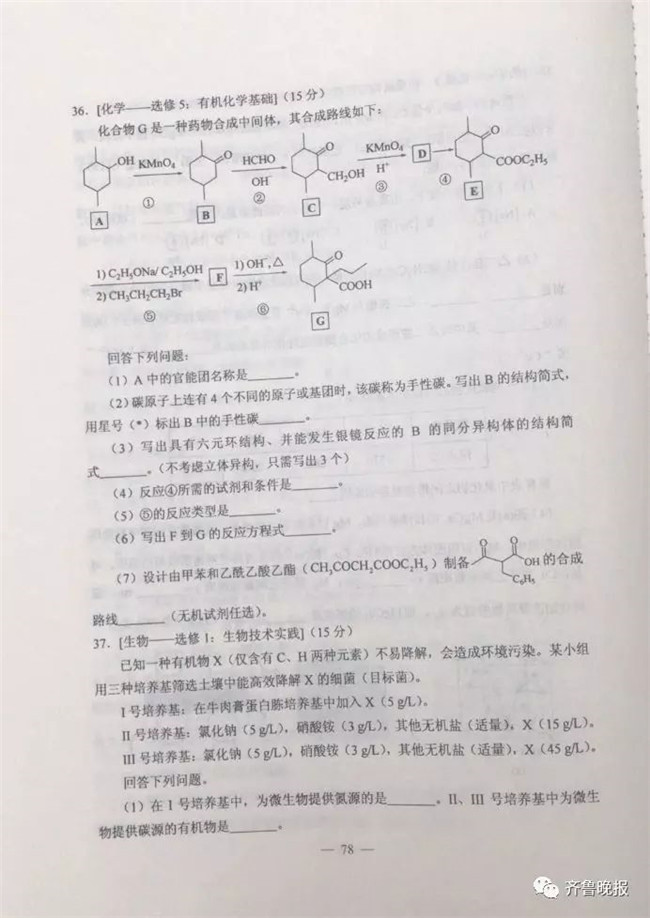 36. [化学——选修5：有机化学基础]（15分）
化合物G是一种药物合成中间体，其合成路线如下：
OH KMnO₄ O HCHO O KMnO₄ O
① OH⁻ CH₂OH H⁺ D COOC₂H₅
② ③ ④
A B C E
1) C₂H₅ONa/ C₂H₅OH F 1) OH⁻, △ O
2) CH₃CH₂CH₂Br 2) H⁺ COOH
⑤ ⑥
G
回答下列问题：
（1）A中的官能团名称是______。
（2）碳原子上连有4个不同的原子或基团时，该碳称为手性碳。写出B的结构简式，
用星号（*）标出B中的手性碳______。
（3）写出具有六元环结构、并能发生银镜反应的B的同分异构体的结构简
式______。（不考虑立体异构，只需写出3个）
（4）反应④所需的试剂和条件是______。
（5）⑤的反应类型是______。
（6）写出F到G的反应方程式______。
（7）设计由甲苯和乙酰乙酸乙酯（CH₃COCH₂COOC₂H₅）制备 O O OH C₆H₅ 的合成
路线______（无机试剂任选）。
37. [生物——选修1：生物技术实践]（15分）
已知一种有机物X（仅含有C、H两种元素）不易降解，会造成环境污染。某小组
用三种培养基筛选土壤中能高效降解X的细菌（目标菌）。
I号培养基：在牛肉膏蛋白胨培养基中加入X（5 g/L）。
II号培养基：氯化钠（5 g/L），硝酸铵（3 g/L），其他无机盐（适量），X（15 g/L）。
III号培养基：氯化钠（5 g/L），硝酸铵（3 g/L），其他无机盐（适量），X（45 g/L）。
回答下列问题。
（1）在I号培养基中，为微生物提供氮源的是______。II、III 号培养基中为微生
物提供碳源的有机物是______。
— 78 —
齐鲁晚报